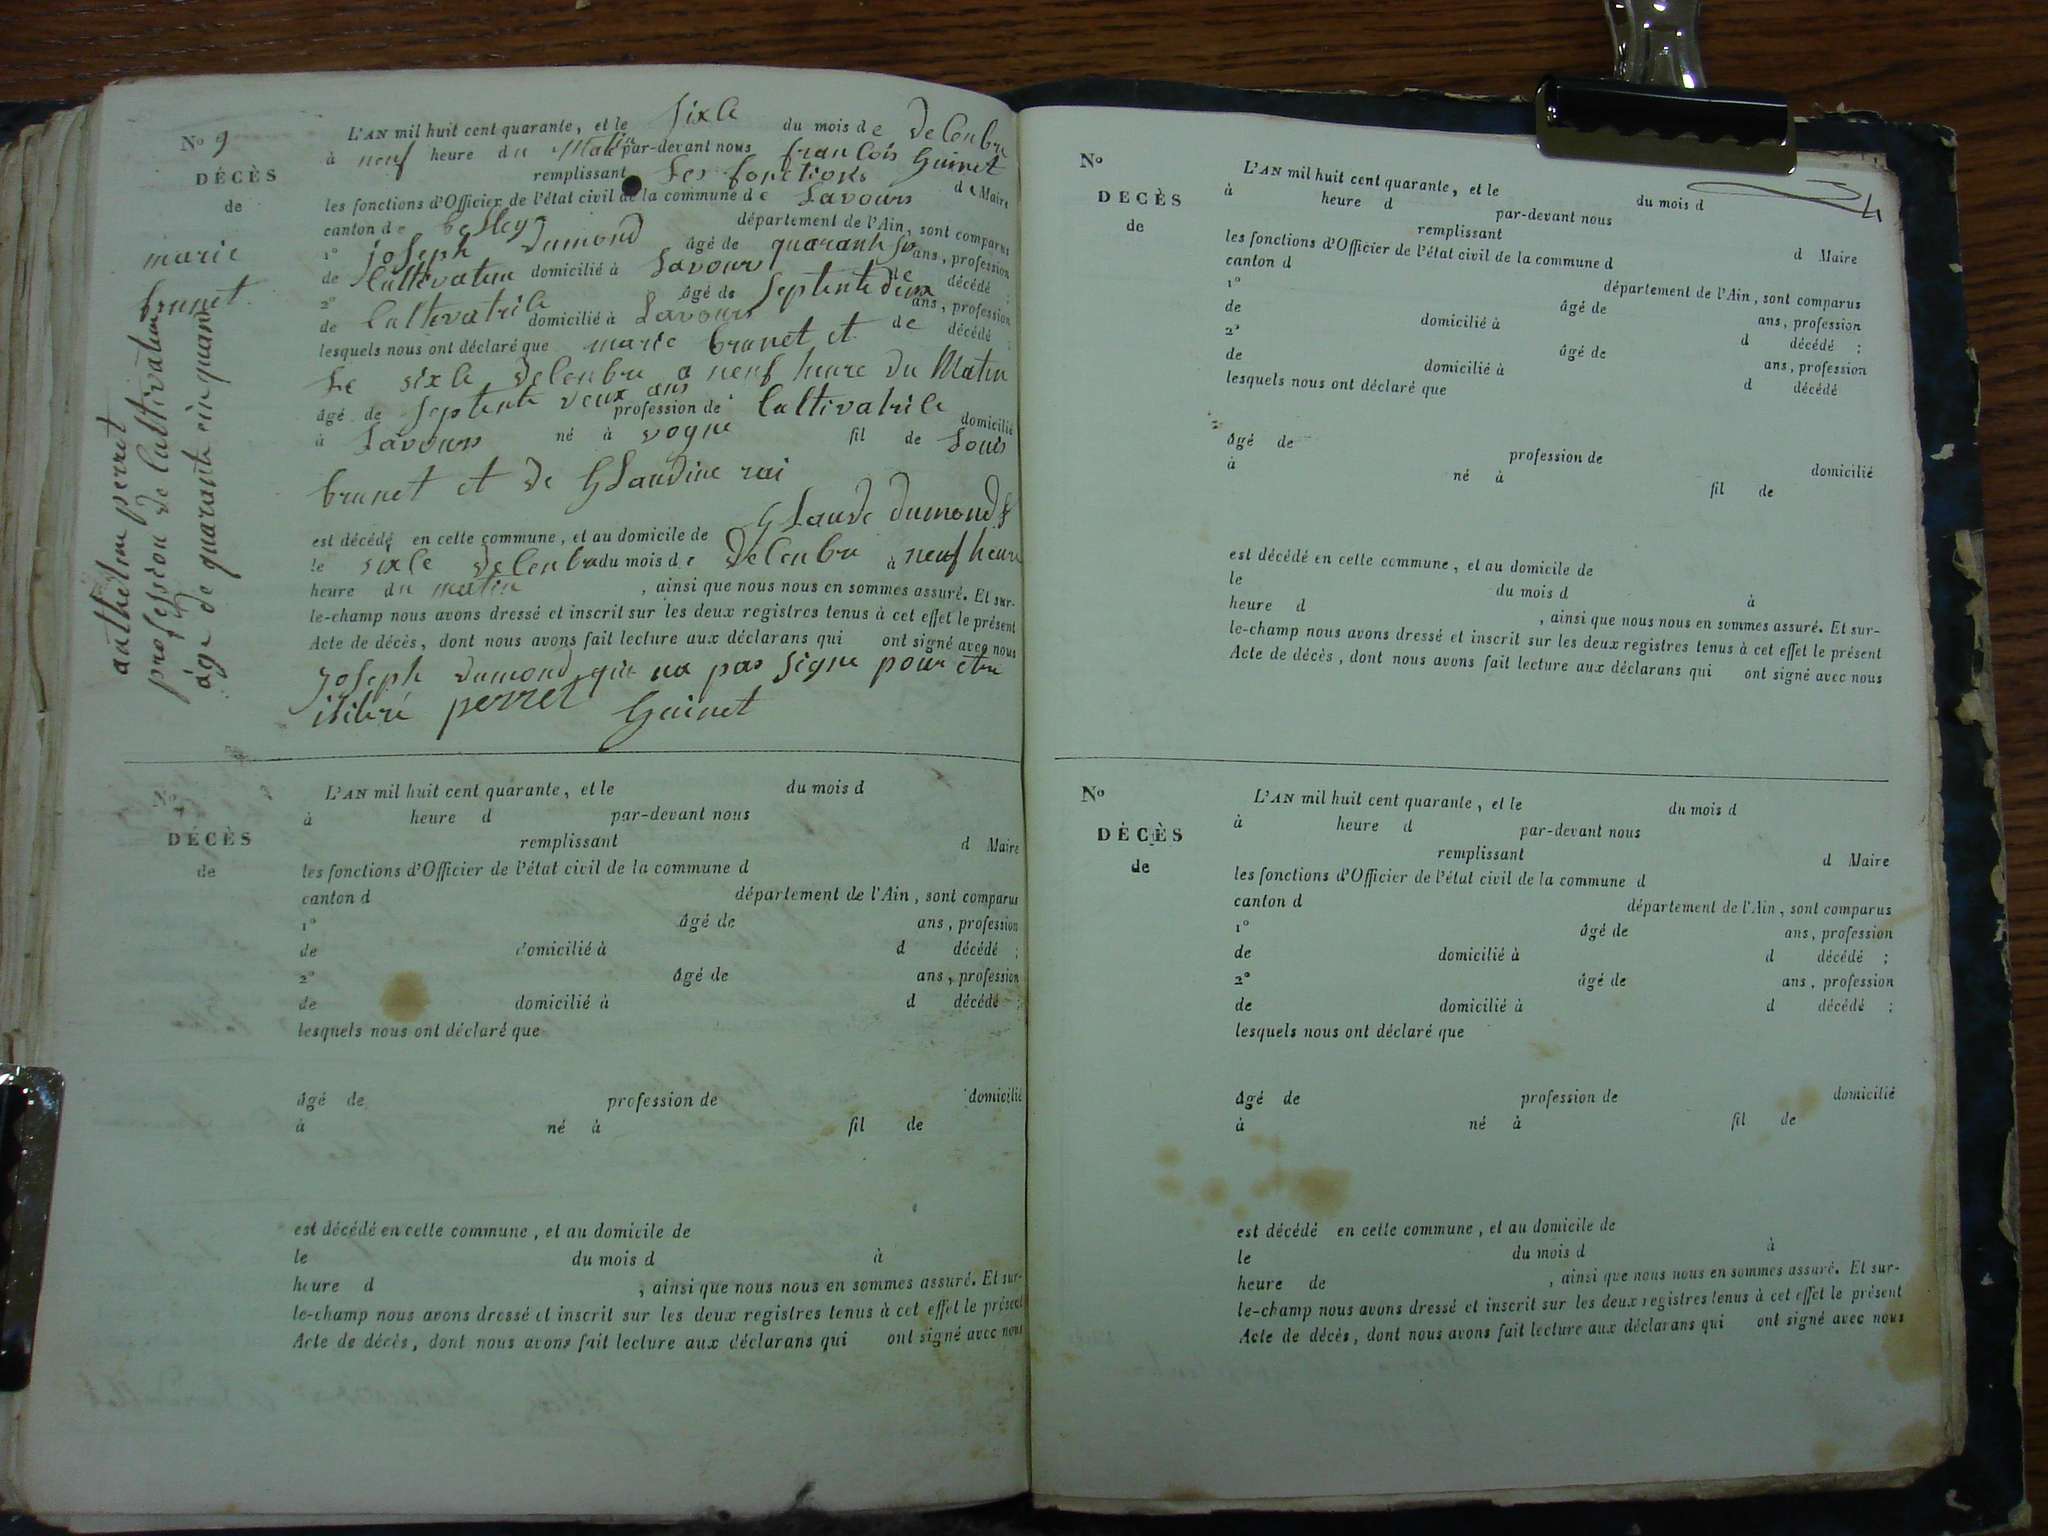 No 9
DÉCÈS
de
marie
brunet
anthelme perret
profession de Cultivateur
âge de quarante cin quant
L'AN mil huit cent quarante, et le sixle du mois de delenbre
à neuf heure du Matin par-devant nous franlois Guinet
remplissant les fonctions de Maire
les fonctions d'Officier de l'état civil de la commune de Lavours
canton de belley département de l'Ain, sont comparus
1° joseph dumond âgé de quarante ans, profession
de Cultivateur domicilié à Lavours de décédé ;
2° âgé de septente deux ans, profession
de Cultivatrile domicilié à Lavours de décédé ;
lesquels nous ont déclaré que marie brunet et
Le sixle delenbre a neuf heure du Matin
âgé de septente deux ans profession de Cultivatrile domicilié
à Lavours né à vogne fil de Louis
brunet et de Glaudine rai
est décédé en cette commune, et au domicile de Glaude dumond
le sixle delenbre du mois de Delenbre à neuf heure
heure du matin , ainsi que nous nous en sommes assuré. Et sur-
le-champ nous avons dressé et inscrit sur les deux registres tenus à cet effet le présent
Acte de décès, dont nous avons fait lecture aux déclarans qui ont signé avec nous
joseph dumond qui na pas signe pour etre
iliteré perret Guinet
No
DÉCÈS
de
L'AN mil huit cent quarante, et le du mois d
à heure d par-devant nous
remplissant d Maire
les fonctions d'Officier de l'état civil de la commune d
canton d département de l'Ain, sont comparus
1° âgé de ans, profession
de domicilié à d décédé ;
2° âgé de ans, profession
de domicilié à d décédé ;
lesquels nous ont déclaré que
âgé de profession de domicilié
à né à fil de
est décédé en cette commune, et au domicile de
le du mois d à
heure d , ainsi que nous nous en sommes assuré. Et sur-
le-champ nous avons dressé et inscrit sur les deux registres tenus à cet effet le présent
Acte de décès, dont nous avons fait lecture aux déclarans qui ont signé avec nous
No
DECÈS
de
L'AN mil huit cent quarante, et le du mois d
à heure d par-devant nous
remplissant d Maire
les fonctions d'Officier de l'état civil de la commune d
canton d département de l'Ain, sont comparus
1° âgé de ans, profession
de domicilié à d décédé ;
2° âgé de ans, profession
de domicilié à d décédé
lesquels nous ont déclaré que
âgé de profession de domicilié
à né à fil de
est décédé en cette commune, et au domicile de
le du mois d à
heure d , ainsi que nous nous en sommes assuré. Et sur-
le-champ nous avons dressé et inscrit sur les deux registres tenus à cet effet le présent
Acte de décès, dont nous avons fait lecture aux déclarans qui ont signé avec nous
No
DÉCÈS
de
L'AN mil huit cent quarante, et le du mois d
à heure d par-devant nous
remplissant d Maire
les fonctions d'Officier de l'état civil de la commune d
canton d département de l'Ain, sont comparus
1° âgé de ans, profession
de domicilié à d décédé ;
2° âgé de ans, profession
de domicilié à d décédé ;
lesquels nous ont déclaré que
âgé de profession de domicilié
à né à fil de
est décédé en cette commune, et au domicile de
le du mois d à
heure de , ainsi que nous nous en sommes assuré. Et sur-
le-champ nous avons dressé et inscrit sur les deux registres tenus à cet effet le présent
Acte de décès, dont nous avons fait lecture aux déclarans qui ont signé avec nous